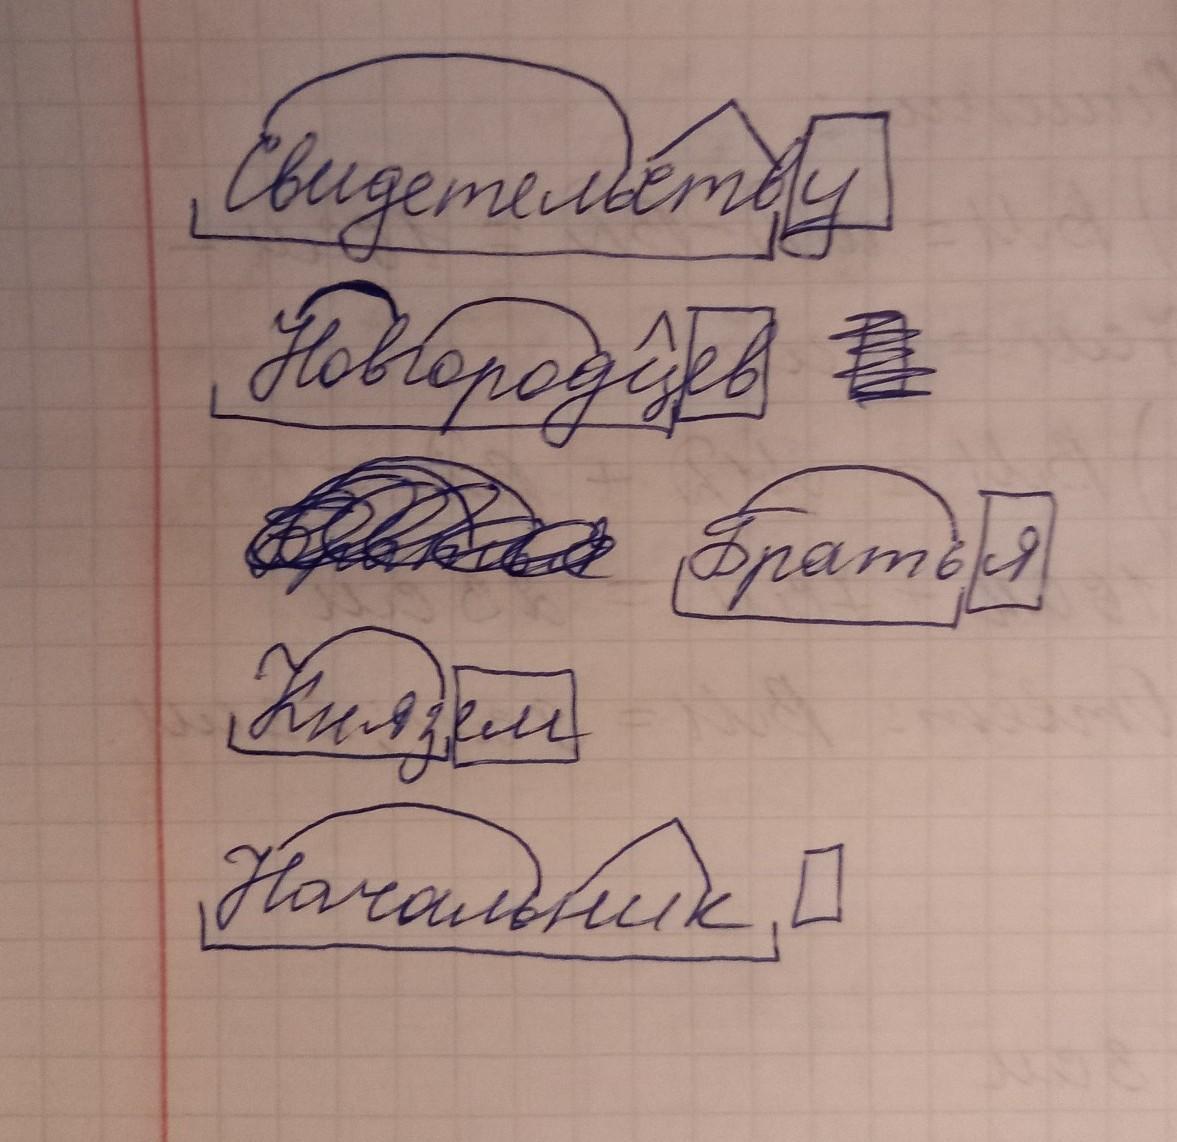 Свидетельству
Новгородцев
Братья
Князем
Начальник